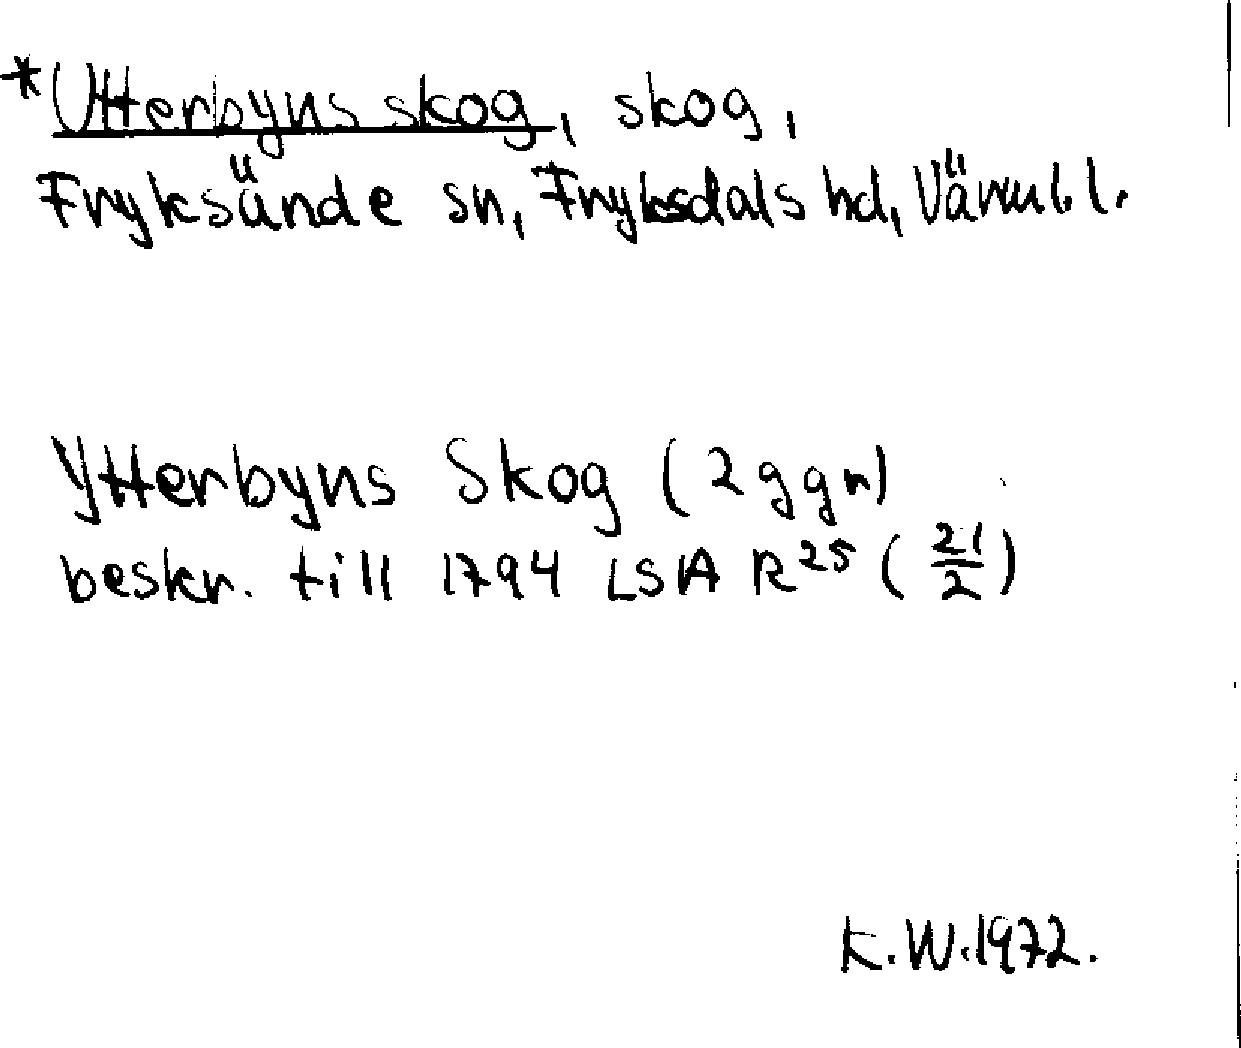 *Utterbyns skog, skog,
Fryksände sn, Fryksdals hd, Värml. l.
Ytterbyns Skog (2 ggr)
beskr. till 1794 LSA R25 (21/2)
K.W. 1972.